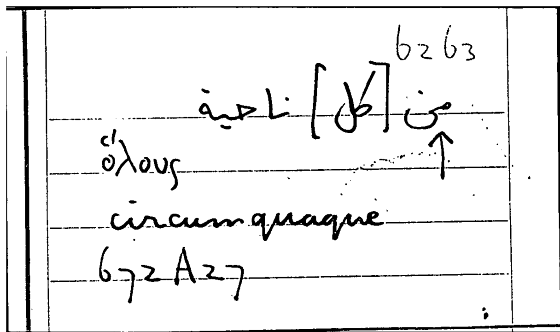 62 63
من [كل] ناحية
ὅλους
circumquaque
672 A 27